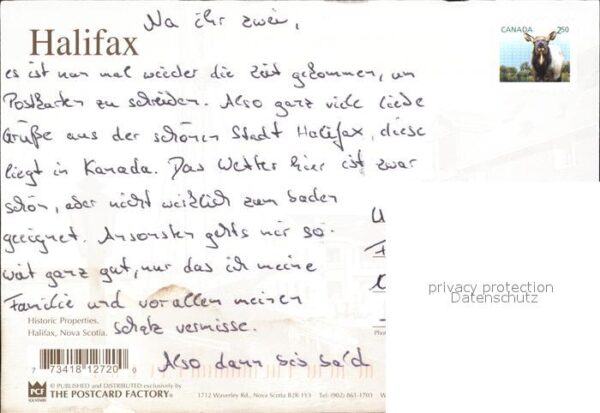 Na ihr zwei,
Halifax
CANADA 2,50
es ist nun mal wieder die Zeit gekommen, um
Postkarten zu schreiben. Also ganz viele liebe
Grüße aus der schönen Stadt Halifax, diese
liegt in Kanada. Das Wetter hier ist zwar
schön, aber nicht wirklich zum baden
geeignet. Ansonsten gehts mir so
weit ganz gut, nur das ich meine
Familie und vor allen meinen
Schatz vermisse.
Also dann bis bald
privacy protection
Datenschutz
Historic Properties.
Halifax, Nova Scotia.
7 73418 12720 0
PCF
© PUBLISHED and DISTRIBUTED exclusively by
THE POSTCARD FACTORY®
1712 Waverley Rd., Nova Scotia B2R 1Y3 Tel: (902) 861-1703